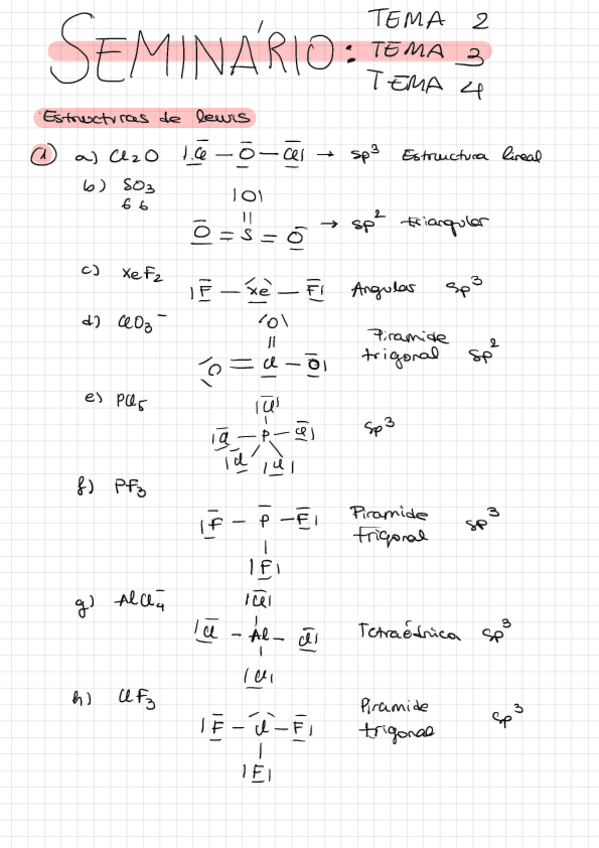 SEMINÁRIO: TEMA 2
TEMA 3
TEMA 4
Estructuras de lewis
1) a) Cl2O |Cl — O — Cl| → sp³ Estructura lineal
b) SO3
6 6
|O|
||
O = S = O → sp² triangular
c) XeF2 |F — Xe — F| Angular sp³
d) ClO3⁻
|O|
||
O = Cl — O| Piramide trigonal sp²
e) PCl5
|Cl|
|Cl — P — Cl| sp³
|Cl |Cl|
f) PF3
|F — P — F| Piramide trigonal sp³
|
|F|
g) AlCl4⁻
|Cl|
|Cl — Al — Cl| Tetraédrica sp³
|
|Cl|
h) ClF3
|F — Cl — F| Piramide trigonal sp³
|
|F|